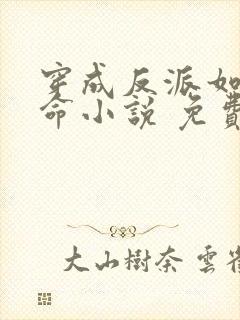 穿成反派如
命小說 免費
大山樹奈 雲雀